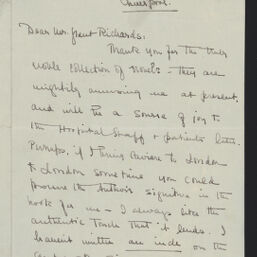 Liverpool.
Dear Mr. Grant Richards.
Thank you for the truly
noble collection of novels - they are
mightily amusing me at present,
and will be a source of joy to
the Hospital Staff & patients later.
Perhaps, if I bring Caviare to London
to London sometime you could
procure the Author's signature in the
book for me - I always like the
authentic touch that it lends. I
haven't written an index on the